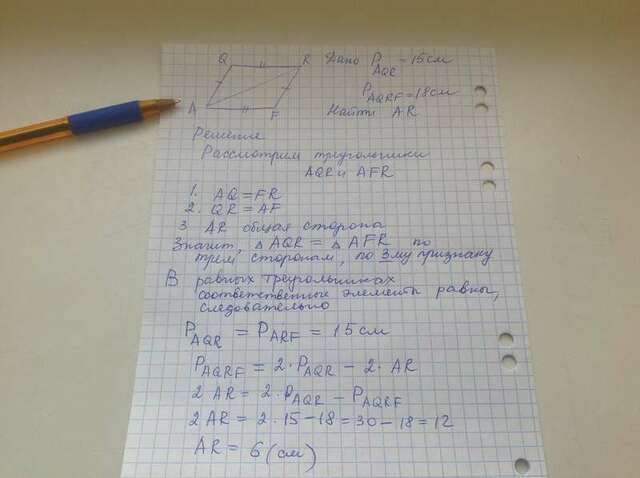 Q R Дано P AQR = 15 см
A F P AQRF = 18 см
Найти AR
Решение
Рассмотрим треугольники
AQR и AFR
1. AQ = FR
2. QR = AF
3 AR общая сторона
Значит, △ AQR = △ AFR по
трем сторонам, по 3му признаку
В равных треугольниках
соответственные элементы равны,
следовательно
P AQR = P ARF = 15 см
P AQRF = 2 · P AQR − 2 · AR
2 AR = 2 · P AQR − P AQRF
2 AR = 2 · 15 − 18 = 30 − 18 = 12
AR = 6 (см)